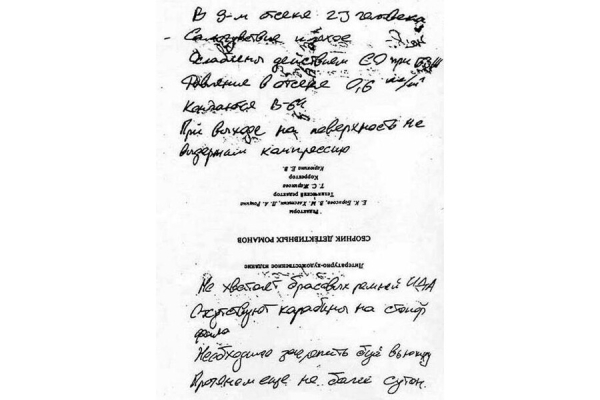 В 9-м отсеке 23 человека
Самочувствие плохое
Ослаблены действием СО при
Давление в отсеке 0,6 кг/см²
Кончаются В-64
При выходе на поверхность не
выдержим компрессию
Литературно-художественное издание
СБОРНИК ДЕТЕКТИВНЫХ РОМАНОВ
Редакторы
Е. К. Борисова, В. М. Л. А. Рощина
Технический редактор
Т. С.
Корректор
Е. В.
Не хватает брасовых ремней ИДА
Отсутствуют карабины на стопоф
фала
Необходимо закрепить буй вьюшку
Протянем еще не более суток.